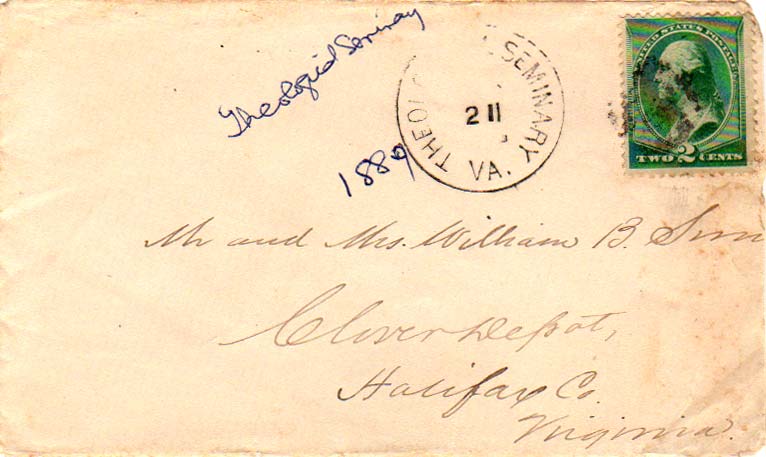 Theological Seminary
1889
THEO SEMINARY
2 11
VA.
UNITED STATES POSTAGE
TWO 2 CENTS
Mr and Mrs. William B.
Clover Depot,
Halifax Co.
Virginia.